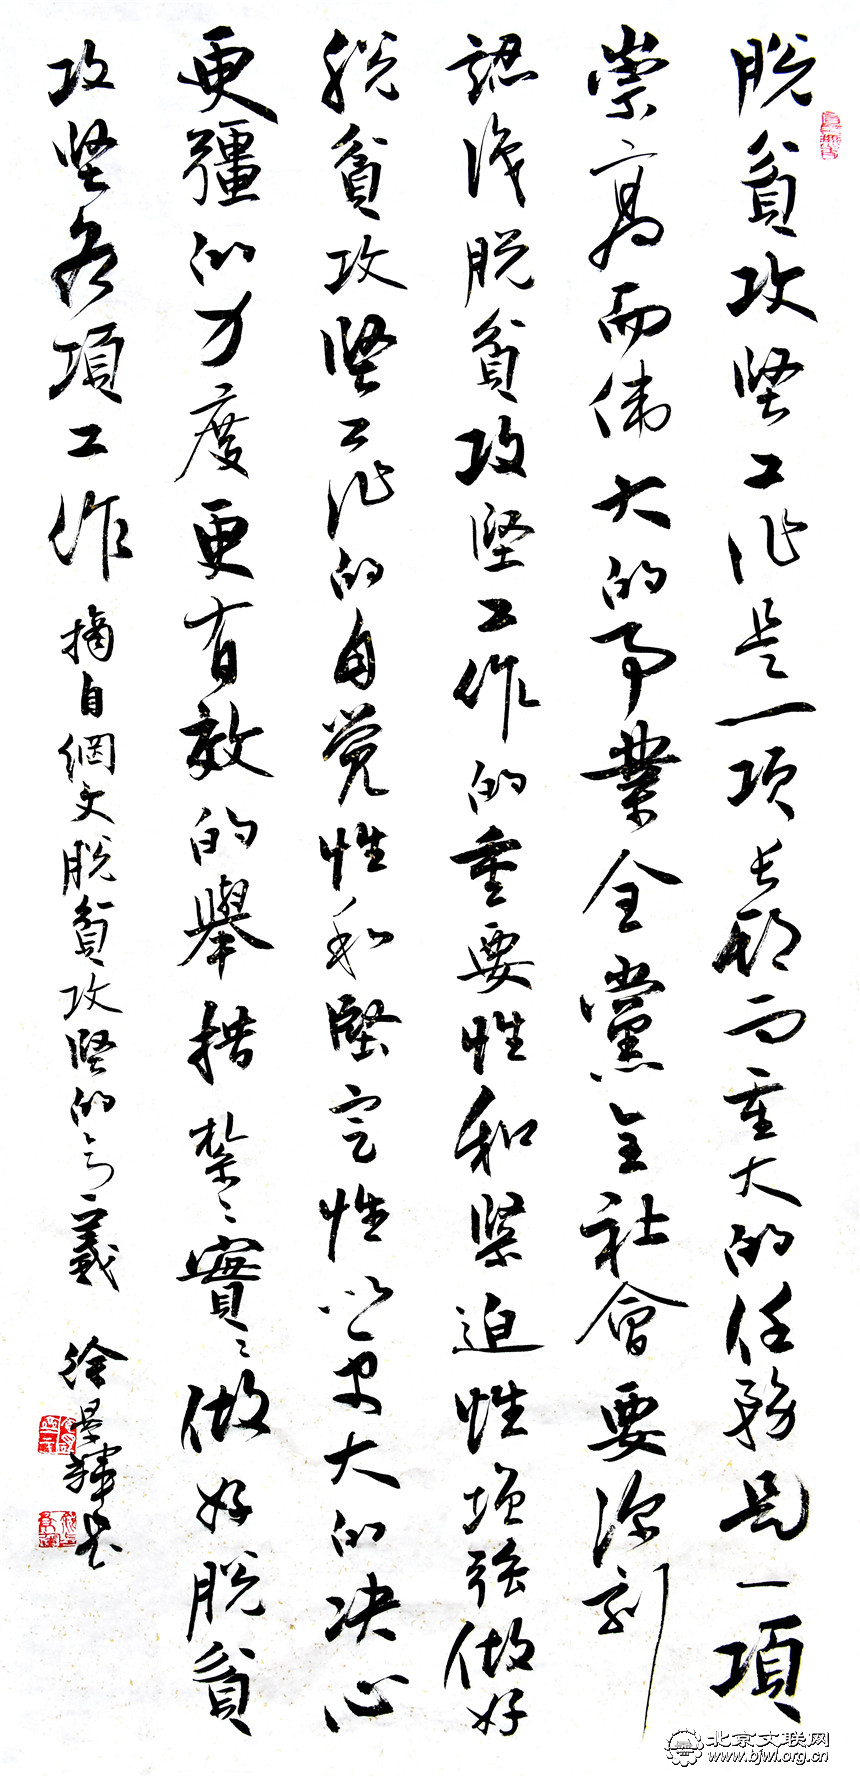 脱貧攻坚工作是一项长期而重大的任務是一項
崇高而伟大的事業全黨全社會要深刻
認识脱貧攻坚工作的重要性和緊迫性增强做好
脱貧攻坚工作的自觉性和堅定性以更大的决心
更彊的力度更有效的舉措紮〻實〻做好脱貧
攻坚各項工作 摘自網文脱貧攻坚的意義 徐景輝书
北京文联网
www.bjwl.org.cn